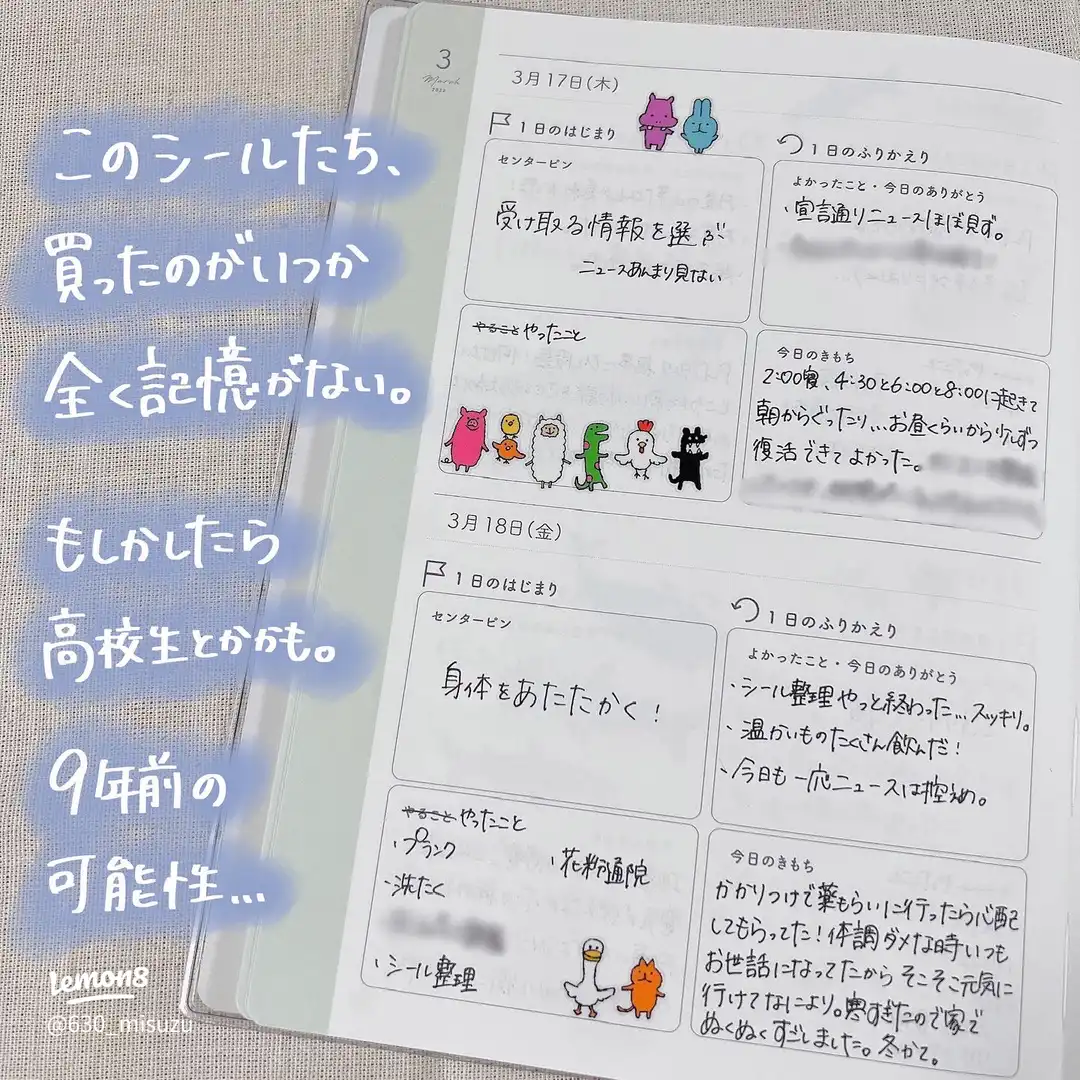 このシールたち、
買ったのがいつか
全く記憶がない。
もしかしたら
高校生とかかも。
9年前の
可能性...
lemon8
@630_misuzu
3
March
2022
3月17日(木)
1日のはじまり
センターピン
受け取る情報を選ぶ
ニュースあんまり見ない
やること やったこと
1日のふりかえり
よかったこと・今日のありがとう
・宣言通りニュースほぼ見ず。
今日のきもち
2:00寝、4:30と6:00と8:00に起きて
朝からぐったり...お昼くらいから少しずつ
復活できてよかった。
3月18日(金)
1日のはじまり
センターピン
身体をあたたかく!
やること やったこと
・プランク
・花粉通院
・洗たく
・シール整理
1日のふりかえり
よかったこと・今日のありがとう
・シール整理やっと終わった...スッキリ。
・温かいものたくさん飲んだ!
・今日も一応ニュースは控えめ。
今日のきもち
かかりつけで薬もらいに行ったら心配
してもらった!体調ダメな時いつも
お世話になってたからそこそこ元気に
行けてなにより。寒すぎたので家で
ぬくぬくすごしました。冬かて。